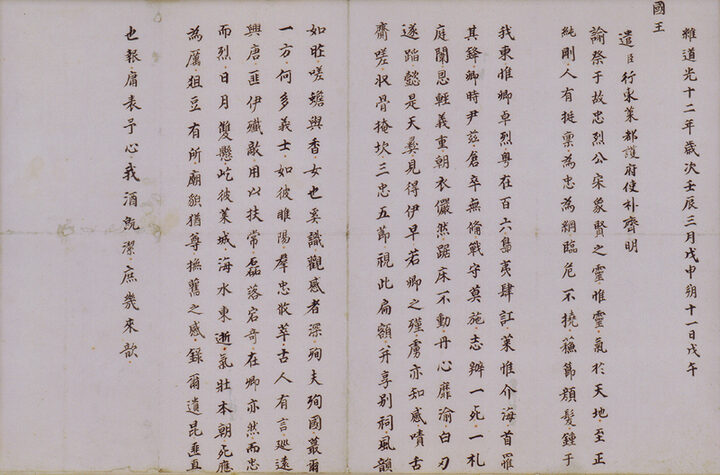 維道光十二年歲次壬辰三月戊申朔十一日戊午
國王
遣臣行東萊都護府使朴齊明
諭祭于故忠烈公宋象賢之靈惟靈氣於天地至正
純剛人有挺稟為忠為綱臨危不撓蘓節顔髮鍾于
我東惟卿卓烈粵在百六島夷肆訌萊惟介海首罹
其鋒卿時尹玆倉卒無備戰守莫施志辦一死一札
庭闈恩輕義重朝衣儼然踞床不動丹心靡渝白刃
遂蹈懿是天彝見得伊早若卿之殣虜亦知感嘖舌
齋嗟收骨掩坎三忠五節視此扁額并享別祠風韻
如昨嗟蟾與香女也奚識觀感者深殉夫殉國蕞爾
一方何多義士如彼睢陽羣忠畢萃古人有言巡遠
興唐匪伊殲敵用以扶常磊落宕奇在卿亦然而忠
而烈日月雙懸屹彼萊城海水東逝氣壯本朝死應
為厲俎豆有所廟貌猶尊撫舊之感錄爾遺昆
也報庸表予心我酒旣潔庶幾來歆